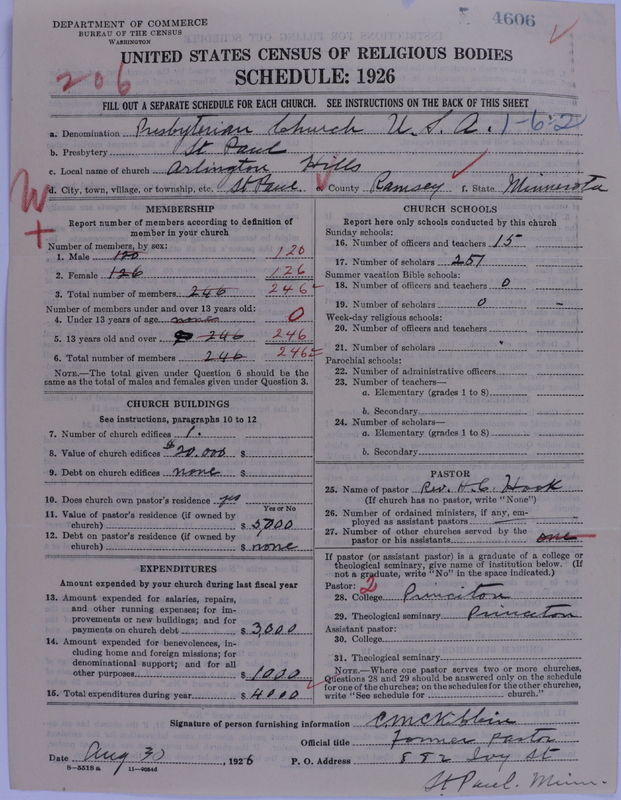 DEPARTMENT OF COMMERCE
BUREAU OF THE CENSUS
WASHINGTON
4606
UNITED STATES CENSUS OF RELIGIOUS BODIES
206
SCHEDULE: 1926
FILL OUT A SEPARATE SCHEDULE FOR EACH CHURCH. SEE INSTRUCTIONS ON THE BACK OF THIS SHEET
a. Denomination Presbyterian Church U. S. A. 1-6-2
b. Presbytery St Paul
c. Local name of church Arlington Hills
d. City, town, village, or township, etc. St Paul e. County Ramsey f. State Minnesota
W
+
MEMBERSHIP
Report number of members according to definition of
member in your church
Number of members, by sex:
1. Male 120 120
2. Female 126 126
3. Total number of members 246 246
Number of members under and over 13 years old:
4. Under 13 years of age none 0
5. 13 years old and over 246 246
6. Total number of members 246 246
NOTE.—The total given under Question 6 should be
same as the total of males and females given under Question 3.
CHURCH BUILDINGS
See instructions, paragraphs 10 to 12
7. Number of church edifices 1.
8. Value of church edifices $20.000 $
9. Debt on church edifices none $
10. Does church own pastor's residence yes
Yes or No
11. Value of pastor's residence (if owned by
church) $ 5,000
12. Debt on pastor's residence (if owned by
church) $ none
EXPENDITURES
Amount expended by your church during last fiscal year
13. Amount expended for salaries, repairs,
and other running expenses; for im-
provements or new buildings; and for
payments on church debt $ 3,000
14. Amount expended for benevolences, in-
cluding home and foreign missions; for
denominational support; and for all
other purposes $ 1000
15. Total expenditures during year $ 4000
CHURCH SCHOOLS
Report here only schools conducted by this church
Sunday schools:
16. Number of officers and teachers 15
17. Number of scholars 251
Summer vacation Bible schools:
18. Number of officers and teachers 0
19. Number of scholars 0 –
Week-day religious schools:
20. Number of officers and teachers
21. Number of scholars
Parochial schools:
22. Number of administrative officers
23. Number of teachers—
a. Elementary (grades 1 to 8)
b. Secondary
24. Number of scholars—
a. Elementary (grades 1 to 8)
b. Secondary
PASTOR
25. Name of pastor Rev. H. C. Hook
(If church has no pastor, write "None")
26. Number of ordained ministers, if any, em-
ployed as assistant pastors —
27. Number of other churches served by the
pastor or his assistants one
If pastor (or assistant pastor) is a graduate of a college or
theological seminary, give name of institution below. (If
not a graduate, write "No" in the space indicated.)
Pastor: 2
28. College Princiton
29. Theological seminary Princeton
Assistant pastor:
30. College
31. Theological seminary
NOTE.—Where one pastor serves two or more churches,
Questions 28 and 29 should be answered only on the schedule
for one of the churches; on the schedules for the other churches,
write "See schedule for church."
Signature of person furnishing information C McKibbin
Official title Former Pastor
Date Aug 30, 1926 P. O. Address 882 Ivy St
8—5518a 11—9064d
St Paul. Minn.